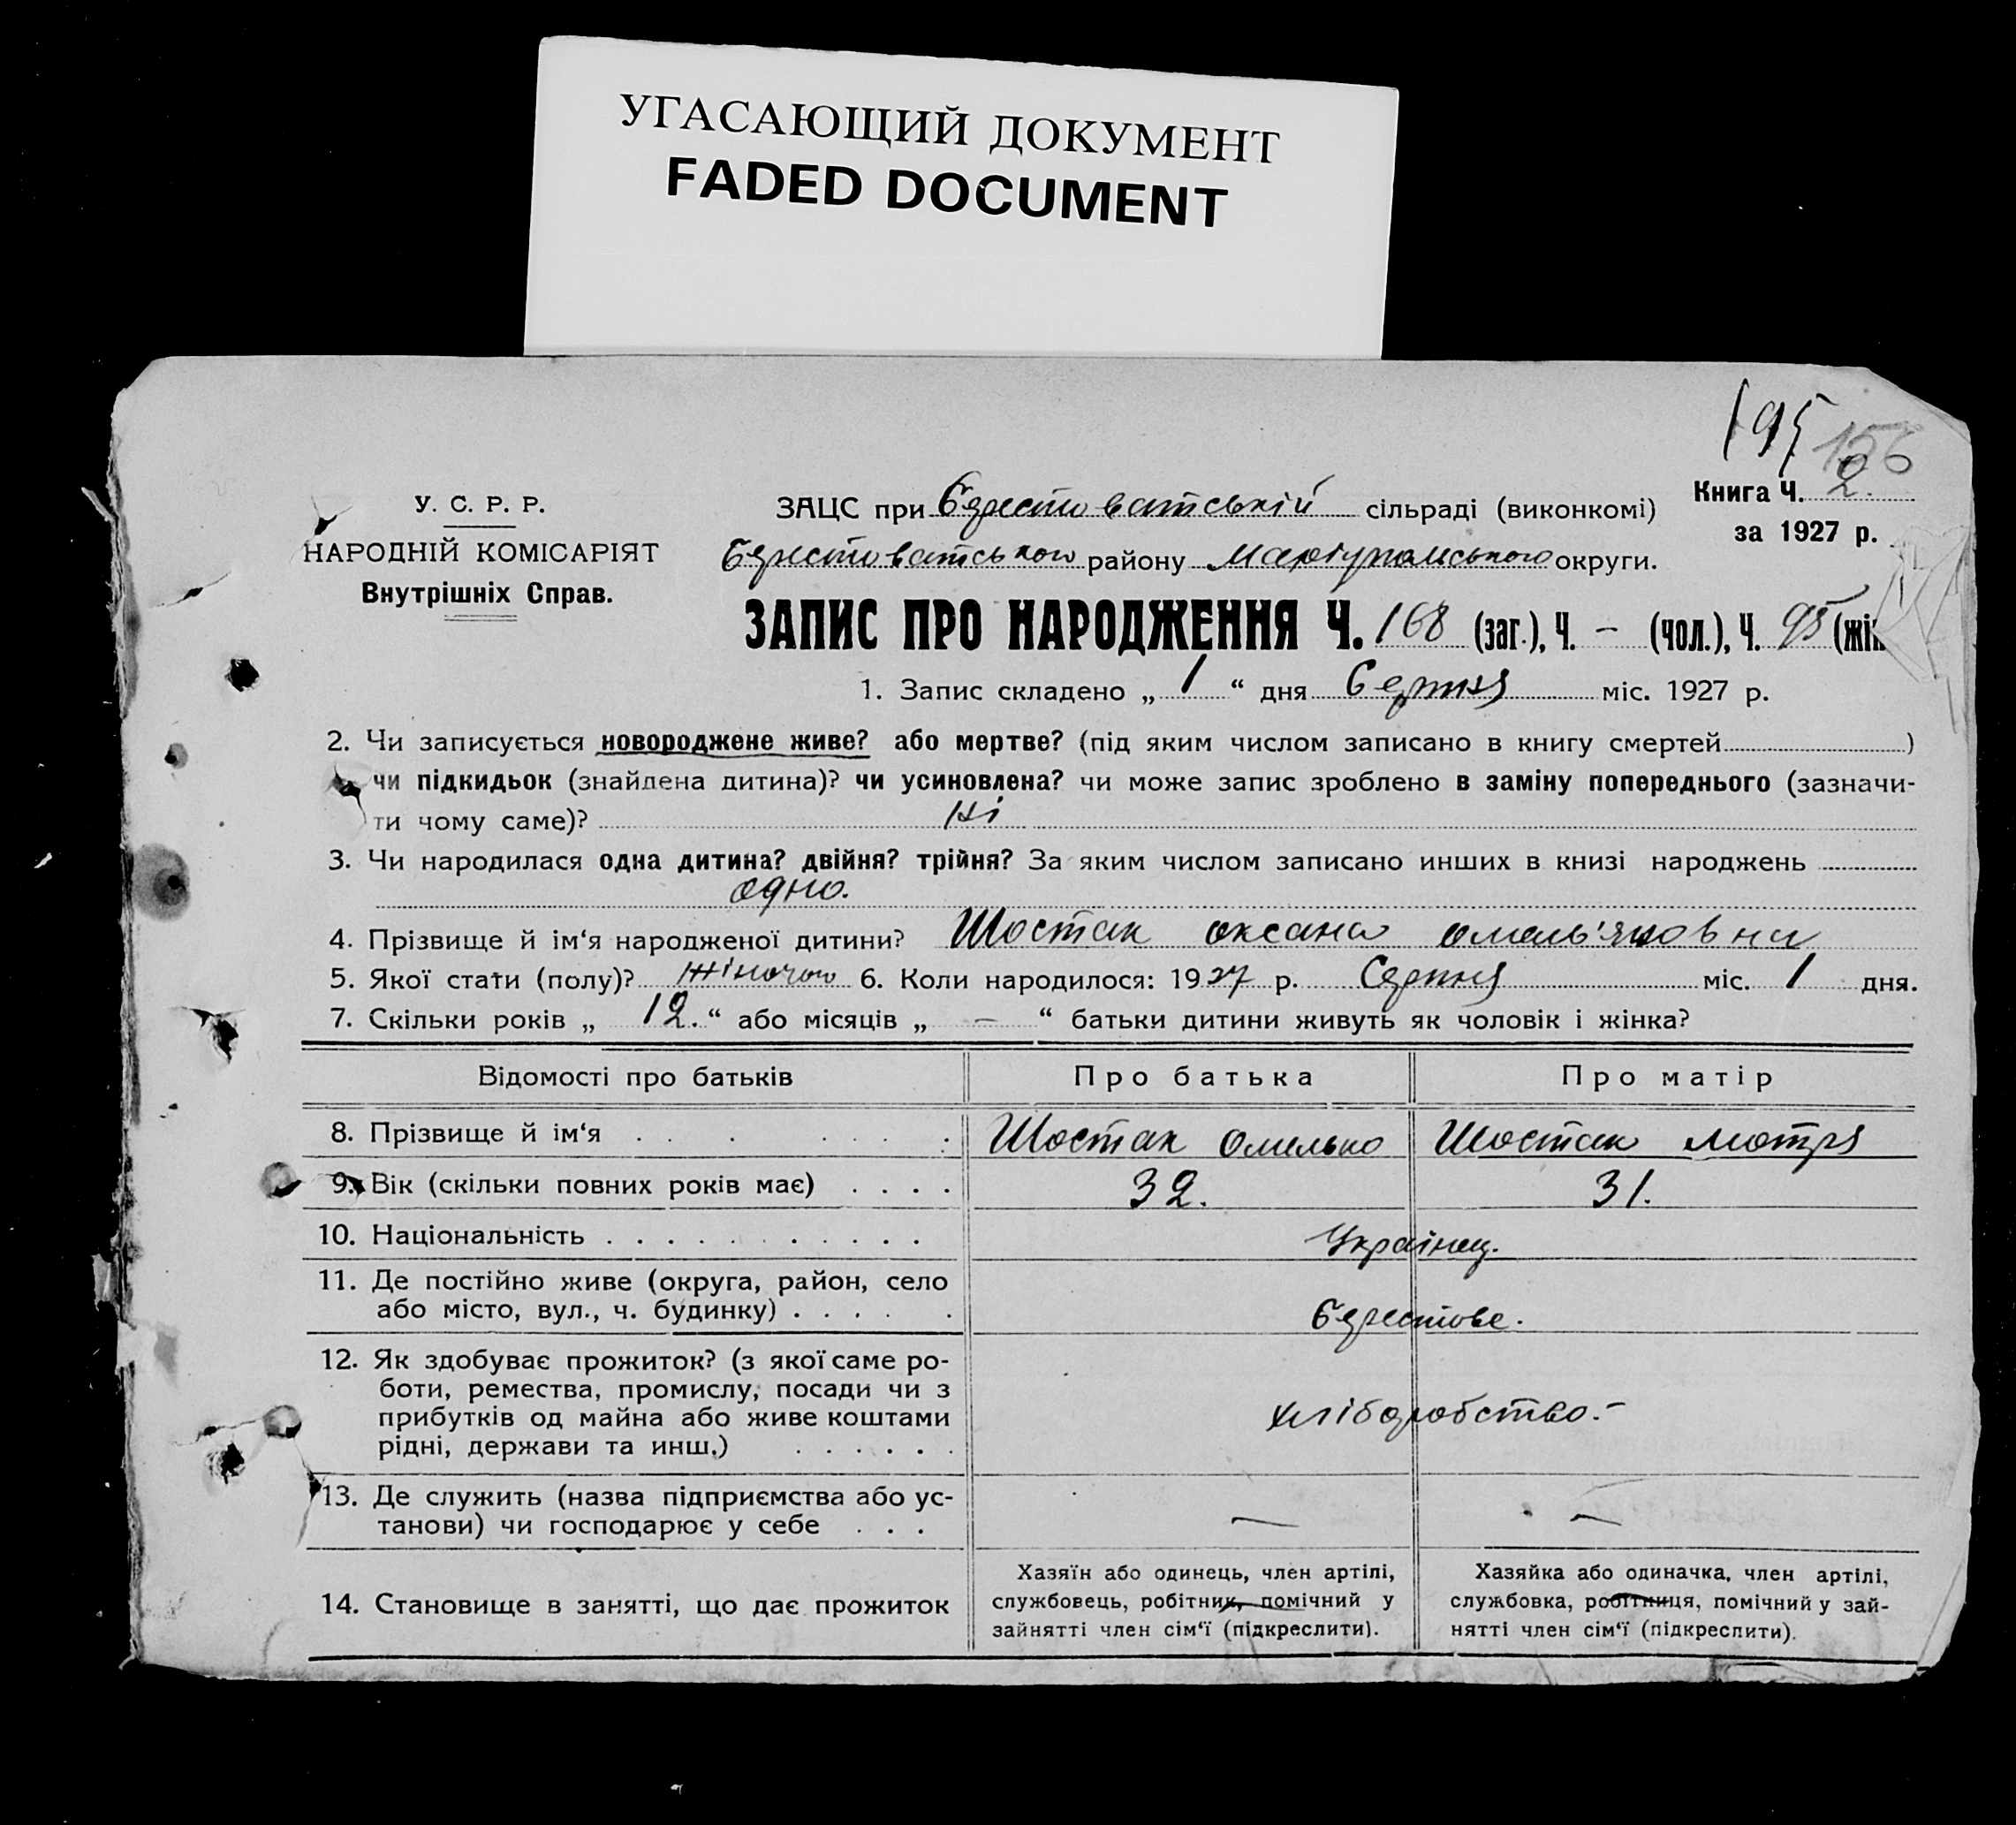 УГАСАЮЩИЙ ДОКУМЕНТ
FADED DOCUMENT
195 156
У. С. Р. Р.
НАРОДНІЙ КОМІСАРІЯТ
Внутрішніх Справ.
Книга Ч. 2.
за 1927 р.
ЗАЦС при Берестоватській сільраді (виконкомі)
Берестоватського району Маріупольського округи.
ЗАПИС ПРО НАРОДЖЕННЯ Ч. 168 (заг.), Ч. – (чол.), Ч. 95 (жін
1. Запис складено „ 1 “ дня Серпня міс. 1927 р.
2. Чи записується новороджене живе? або мертве? (під яким числом записано в книгу смертей )
чи підкидьок (знайдена дитина)? чи усиновлена? чи може запис зроблено в заміну попереднього (зазначи-
ти чому саме)? Ні
3. Чи народилася одна дитина? двійня? трійня? За яким числом записано инших в книзі народжень
одно.
4. Прізвище й ім‘я народженої дитини? Шостак оксана омель'яновна
5. Якої стати (полу)? жіночої 6. Коли народилося: 1927 р. Серпня міс. 1 дня.
7. Скільки років „ 12. “ або місяців „ – “ батьки дитини живуть як чоловік і жінка?
Відомості про батьків Про батька Про матір
8. Прізвище й ім‘я . . . . . . . Шостак Омелько Шостак мотря
9. Вік (скільки повних років має) . . . . 32. 31.
10. Національність . . . . . . . . . . . Українец.
11. Де постійно живе (округа, район, село
або місто, вул., ч. будинку) . . . . . Берестове.
12. Як здобуває прожиток? (з якої саме ро-
боти, ремества, промислу, посади чи з
прибутків од майна або живе коштами
рідні, держави та инш.) . . . . . . хліборобство.-
13. Де служить (назва підприємства або ус-
танови) чи господарює у себе . . . — —
14. Становище в занятті, що дає прожиток
Хазяїн або одинець, член артілі,
службовець, робітник, помічний у
зайнятті член сім‘ї (підкреслити).
Хазяйка або одиначка, член артілі,
службовка, робітниця, помічний у зай-
нятті член сім‘ї (підкреслити).